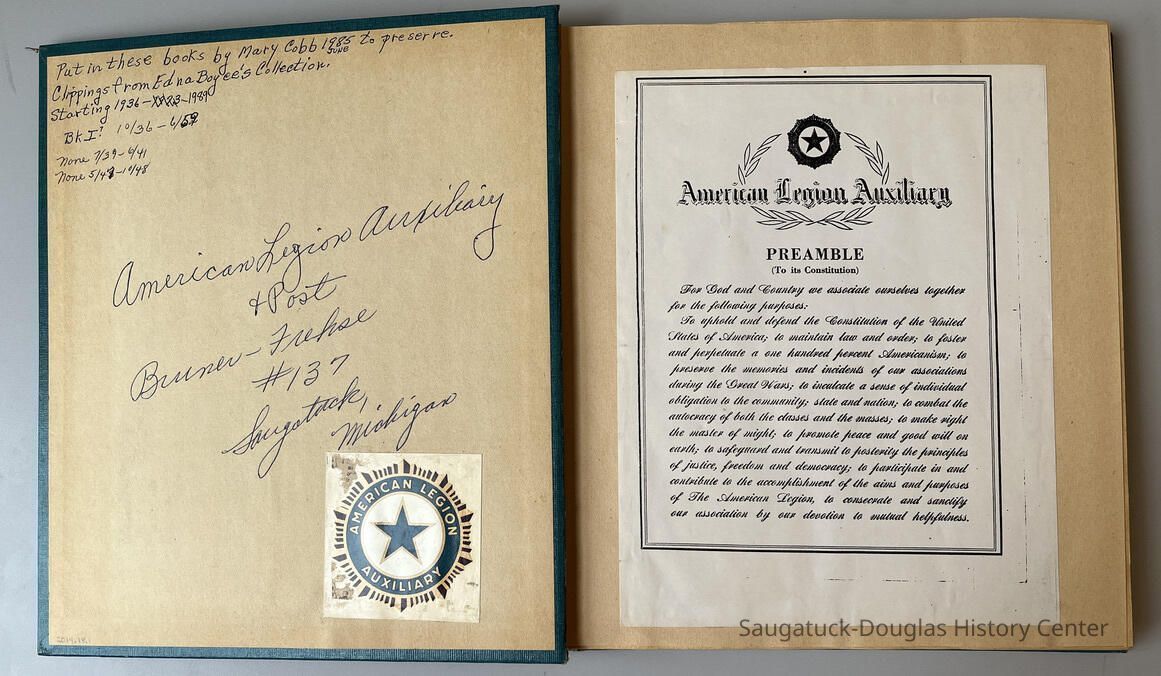 Put in these books by Mary Cobb 1985 to preserve.
JUNE
Clippings from Edna Boyce's Collection.
Starting 1936 – -1989
Bk I: 10/36 – 6/59
None 7/39 – 6/41
None 5/47 – 10/48
American Legion Auxiliary
& Post
Bruner – Frehse
#137
Saugatuck,
Michigan
AMERICAN LEGION
AUXILIARY
2014.18.1
American Legion Auxiliary
PREAMBLE
(To its Constitution)
For God and Country we associate ourselves together
for the following purposes:
To uphold and defend the Constitution of the United
States of America; to maintain law and order; to foster
and perpetuate a one hundred percent Americanism; to
preserve the memories and incidents of our associations
during the Great Wars; to inculcate a sense of individual
obligation to the community; state and nation; to combat the
autocracy of both the classes and the masses; to make right
the master of might; to promote peace and good will on
earth; to safeguard and transmit to posterity the principles
of justice, freedom and democracy; to participate in and
contribute to the accomplishment of the aims and purposes
of The American Legion, to consecrate and sanctify
our association by our devotion to mutual helpfulness.
Saugatuck-Douglas History Center